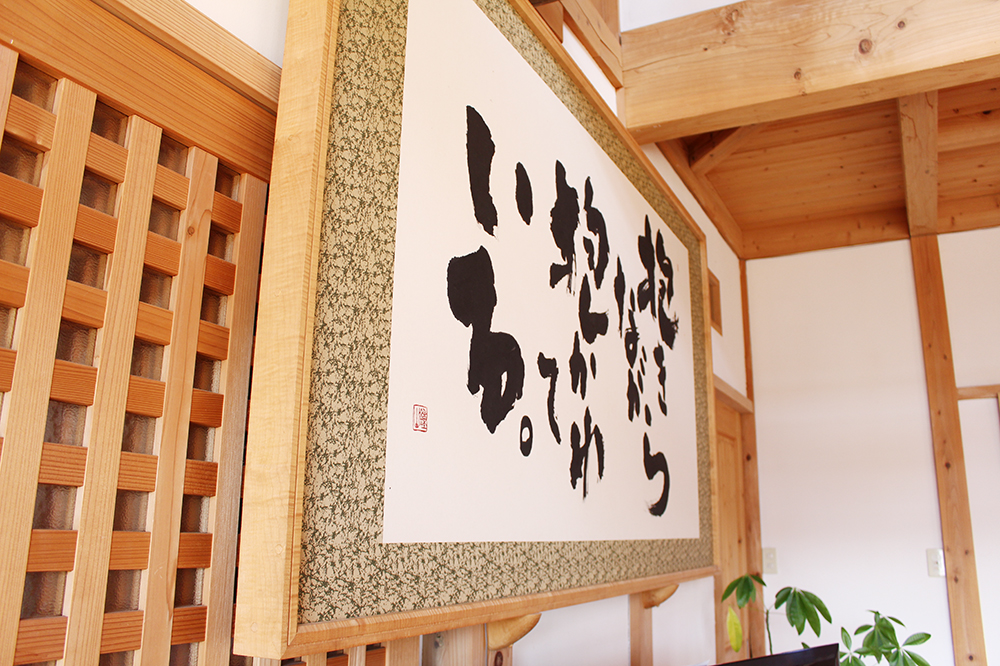 抱き
ながら
抱かれて
いる。